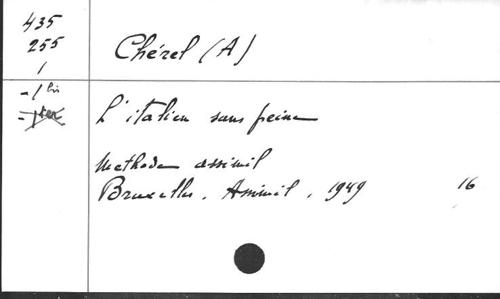 435
255
1
Chérel (A)
- 1 bis
L'italien sans peine
Methode assimil
Bruxelles, Assimil, 1949 16